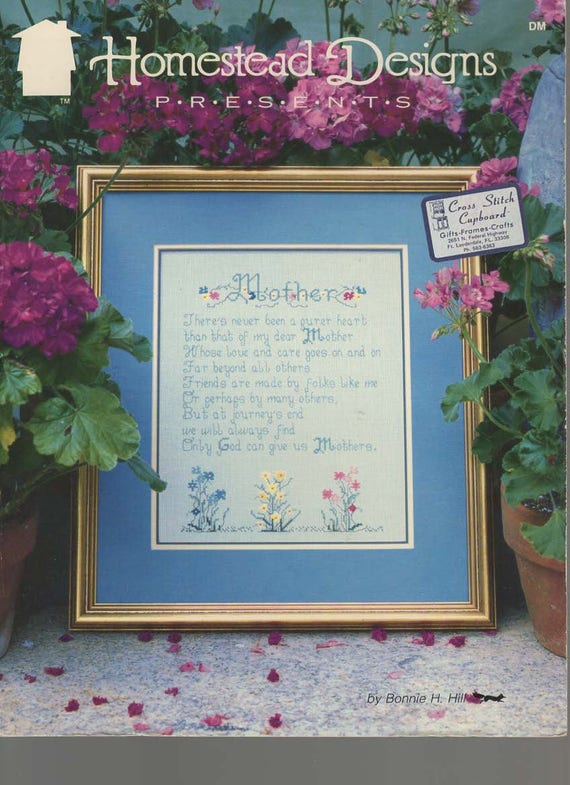 DM
Homestead Designs
P•R•E•S•E•N•T•S
TM
Cross Stitch
Cupboard
Gifts-Frames-Crafts
2651 N. Federal Highway
Ft. Lauderdale, FL. 33306
Ph. 563-6363
Mother
There's never been a purer heart
than that of my dear Mother
Whose love and care goes on and on
Far beyond all others.
Friends are made by folks like me
Or perhaps by many others,
But at journey's end
we will always find
Only God can give us Mothers.
by Bonnie H. Hill